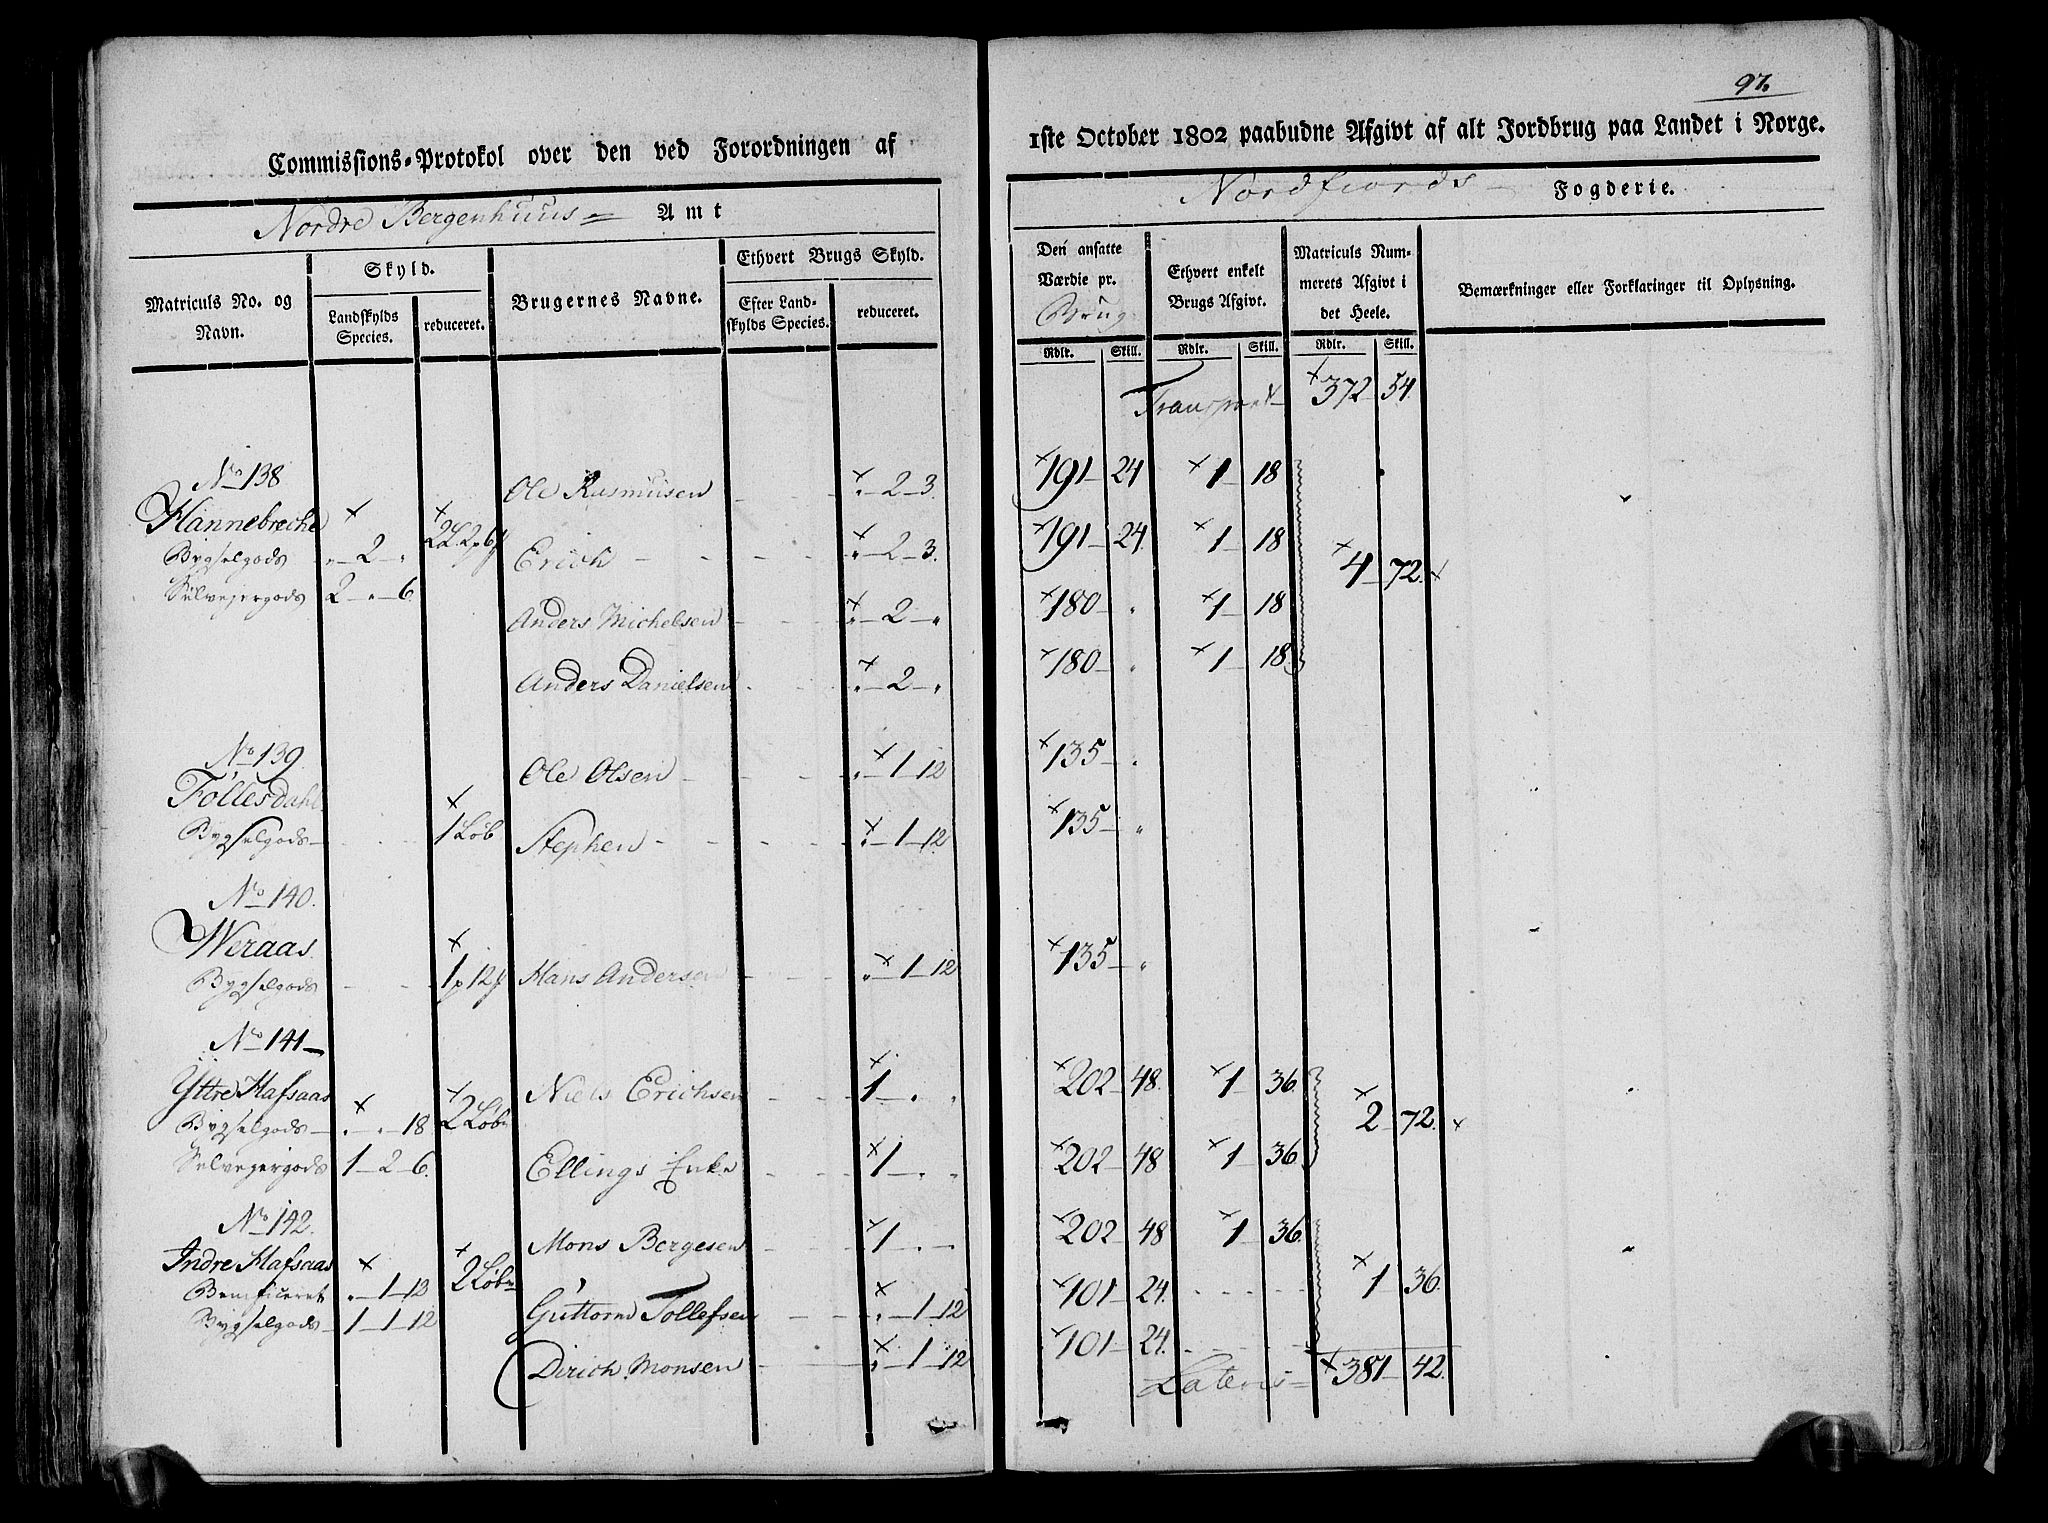 97.
Commissions-Protokol over den ved Forordningen af
1ste October 1802 paabudne Afgivt af alt Jordbrug paa Landet i Norge.
Nordre Bergenhuus Amt
Nordfiords Fogderie.
Matriculs No. og Navn.
Skyld.
Landskylds Species.
reduceret.
Brugernes Navne.
Ethvert Brugs Skyld.
Efter Landskylds Species.
reduceret.
Den ansatte Værdie pr. Brug
Ethvert enkelt Brugs Afgivt.
Matriculs Nummerets Afgivt i det Heele.
Bemærkninger eller Forklaringer til Oplysning.
Rdlr. Skill. Rdlr. Skill. Rdlr. Skill.
Transport 372 54.
No 138
Ole Rasmusen " 2 3. 191 24 1 18
Hannebreche 2L 2p 6
Bygselgods " 2 "
Erich " 2 3. 191 24. 1 18
4 72.
Selvejergods 2 " 6.
Anders Michelsen " 2 " 180 " 1 18
Anders Danielsen " 2 " 180 " 1 18
No 139
Ole Olsen " 1 12 135 "
Tollesdahl 1 Løb
Bygselgods
Stephen " 1 12 135 "
No 140.
Weraas
Bygselgods 1p 12
Hans Andersen " 1 12 135 "
No 141
Yttre Hafsaas
Niels Erichsen 1 " " 202 48. 1 36.
Bygselgods " " 18 2 Løb
2 72.
Selvejergods 1 2 6.
Ellings Enke 1 " " 202 48 1 36.
No 142.
Mons Bergesen 1 " " 202 48 1 36.
Indre Hafsaas 2 Løb
Beneficeret " 1 12
1 36.
Bygselgods 1 1 12
Guttorm Tollefsen " 1 12 101 24.
Dirich Monsen " 1 12 101 24.
Lateris 381 42.